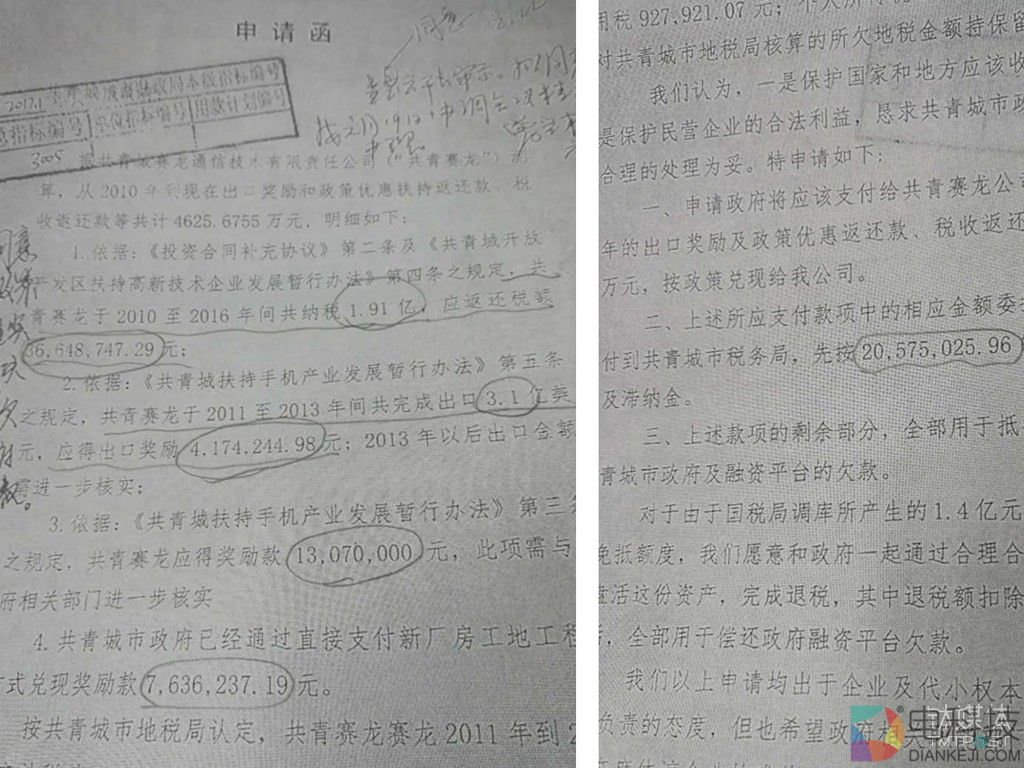 申请函
同意
2017.1 共青城市财政局本级指标编号
总指标编号 单位指标编号 用款计划编号
3005
据共青城赛龙通信技术有限责任公司（“共青赛龙”）
算，从2010年到现在出口奖励和政策优惠扶持返还款、税
收返还款等共计4625.6755万元，明细如下：
1.依据：《投资合同补充协议》第二条及《共青城开放
开发区扶持高新技术企业发展暂行办法》第四条之规定，共
青赛龙于2010至2016年间共纳税1.91亿，应返还税额
36,648,747.29元；
2.依据：《共青城扶持手机产业发展暂行办法》第五条
之规定，共青赛龙于2011至2013年间共完成出口3.1亿美
元，应得出口奖励4,174,244.98元；2013年以后出口金额
需进一步核实；
3.依据：《共青城扶持手机产业发展暂行办法》第三条
之规定，共青赛龙应得奖励款13,070,000元，此项需与
府相关部门进一步核实
4.共青城市政府已经通过直接支付新厂房工地工程
方式兑现奖励款7,636,237.19元。
按共青城市地税局认定，共青赛龙赛龙2011年到2
用税927,921.07元；个人所得税
对共青城市地税局核算的所欠地税金额持保留
我们认为，一是保护国家和地方应该收
是保护民营企业的合法利益，恳求共青城市政
合理的处理为妥。特申请如下：
一、申请政府将应该支付给共青赛龙公司
年的出口奖励及政策优惠返还款、税收返还
万元，按政策兑现给我公司。
二、上述所应支付款项中的相应金额委
付到共青城市税务局，先按20,575,025.96
及滞纳金。
三、上述款项的剩余部分，全部用于抵
青城市政府及融资平台的欠款。
对于由于国税局调库所产生的1.4亿元
免抵额度，我们愿意和政府一起通过合理合
盘活这份资产，完成退税，其中退税额扣除
，全部用于偿还政府融资平台欠款。
我们以上申请均出于企业及代小权本
负责的态度，但也希望政府
电科技
DIANKEJI.COM